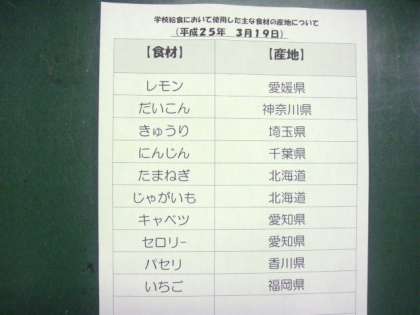 学校給食において使用した主な食材の産地について
（平成25年 3月19日）
【食材】 【産地】
レモン 愛媛県
だいこん 神奈川県
きゅうり 埼玉県
にんじん 千葉県
たまねぎ 北海道
じゃがいも 北海道
キャベツ 愛知県
セロリー 愛知県
パセリ 香川県
いちご 福岡県